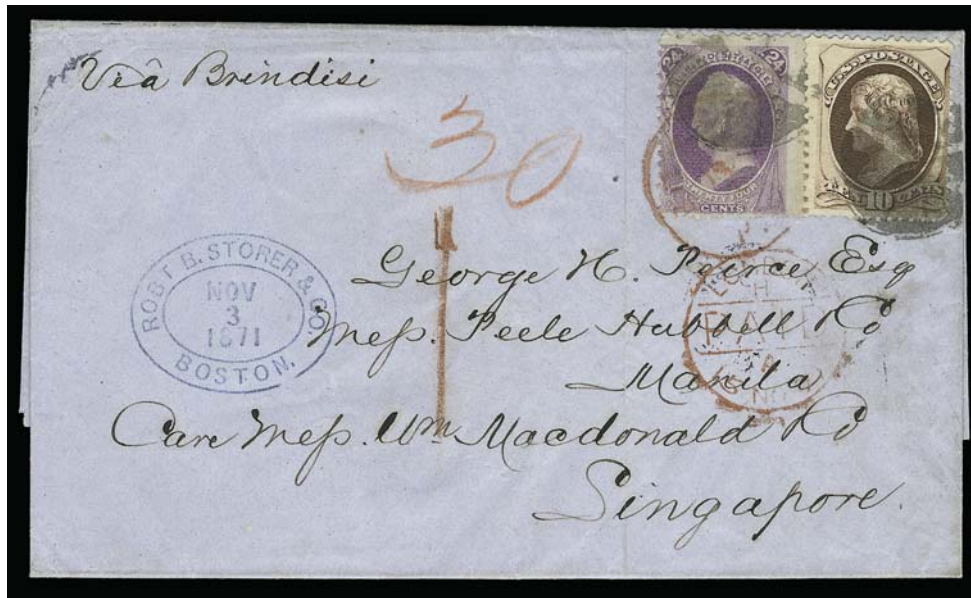 Viâ Brindisi
30
1
24 24
TWENTY FOUR
CENTS
U.S. POSTAGE
10
ROBT B. STORER & CO.
NOV
3
1871
BOSTON.
George H. Peirce Esq
Mess. Peele Hubbell & Co
Manila
Care Mess. Wm Macdonald & Co
Singapore.
PAID